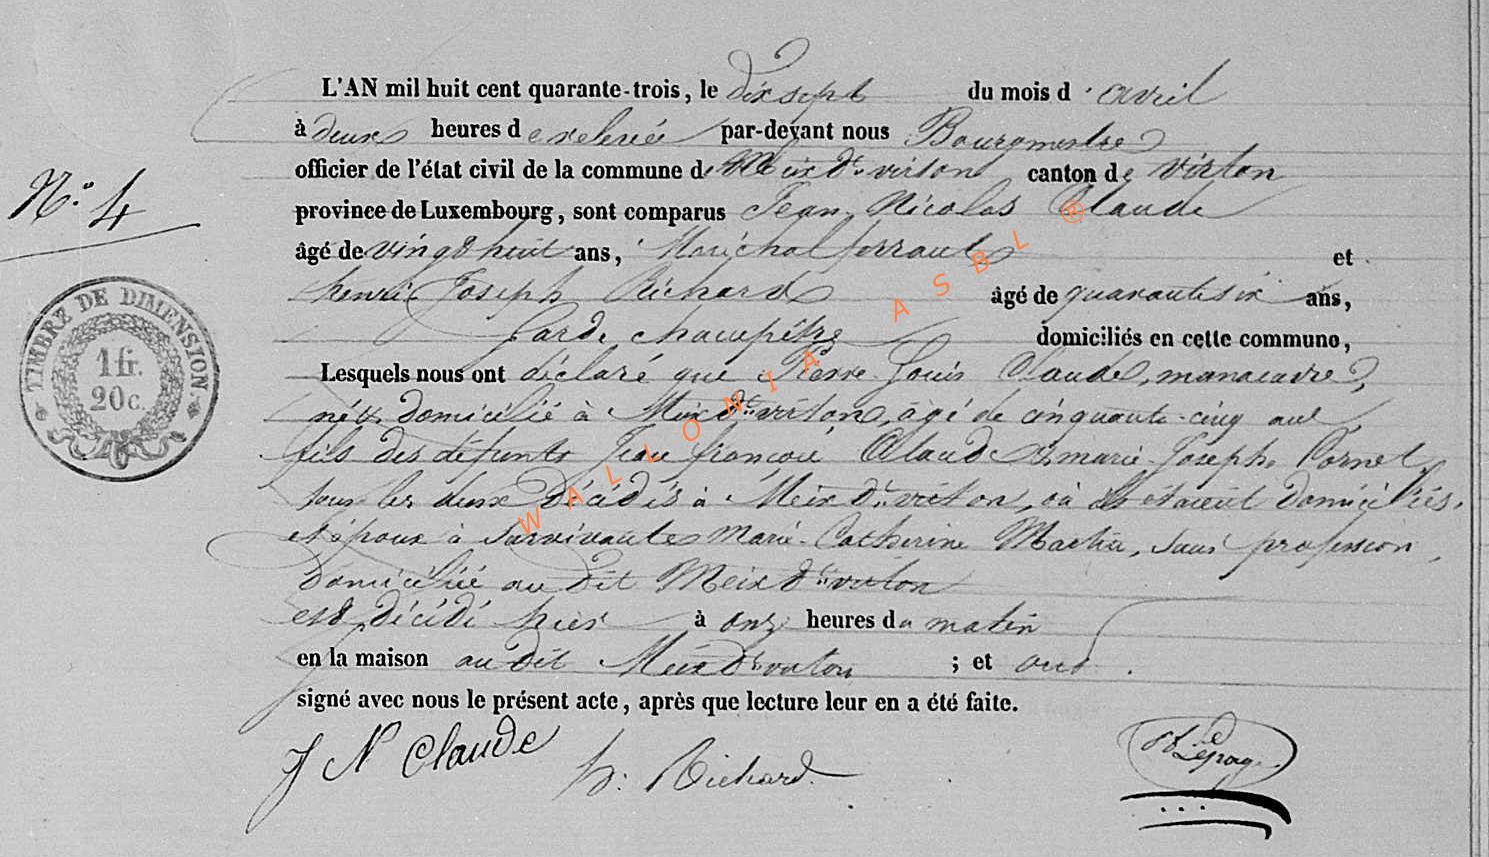 L'AN mil huit cent quarante-trois, le dix sept du mois d'avril
à deux heures de relevée par-devant nous Bourgmestre
officier de l'état civil de la commune de Meix dt virton canton de virton
province de Luxembourg, sont comparus Jean Nicolas Claude
âgé de vingt huit ans, Maréchal ferrant et
henri Joseph Richard âgé de quarante six ans,
Garde champêtre domiciliés en cette commune,
Lesquels nous ont déclaré que Pierre Louis Claude, manœuvre,
né & domicilié à Meix dt virton, âgé de cinquante-cinq ans
fils des défunts Jean françois Claude & marie Joseph Cornet
tous les deux décédés à Meix dt virton, où ils étaient domiciliés,
et époux à survivante Marie-Catherine Martin, sans profession,
domiciliée au dit Meix dt virton
est décédé hier à onze heures du matin
en la maison au dit Meix dt virton ; et ont
signé avec nous le présent acte, après que lecture leur en a été faite.
No. 4
TIMBRE DE DIMENSION.
1 fr.
20 c.
J N Claude h: Richard Lepage
WALLONIA ASBL ®